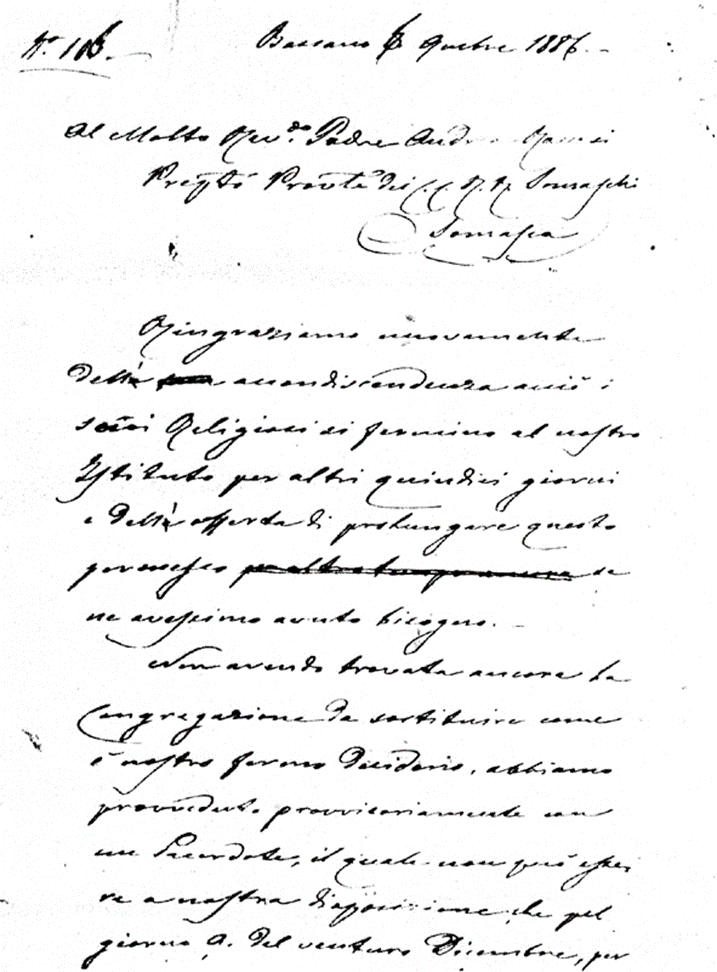 N.º 106.
Bassano 8bre 1886.
Al Molto Rev.do Padre
Prep.to Prov.le dei C. C. R. R. Somaschi
Somasca
Ringraziamo nuovamente
della accondiscendenza acciò i
suoi Religiosi si fermino al nostro
Istituto per altri quindici giorni
e dell'offerta di prolungare questo
permesso per altro tempo ancora se
ne avessimo avuto bisogno.
Non avendo trovata ancora la
Congregazione da sostituire come
è nostro fermo desiderio, abbiamo
provveduto provvisoriamente con
un Sacerdote, il quale non può esse
re a nostra disposizione che pel
giorno del venturo Dicembre, per